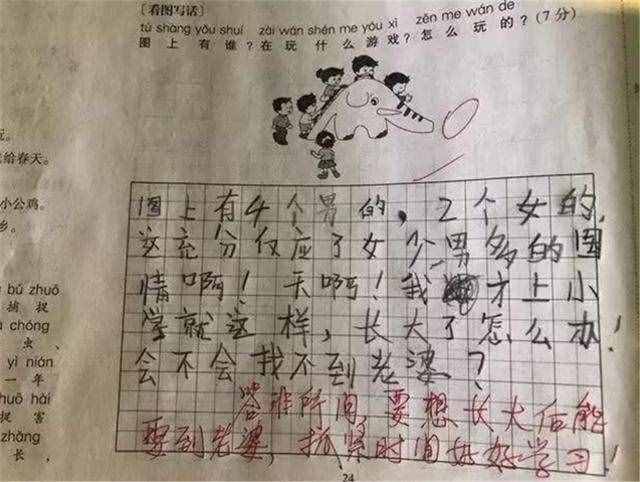 [看图写话]
tú shàng yǒu shuí zài wán shén me yóu xì zěn me wán de
图上有谁？在玩什么游戏？怎么玩的？(7分)
玩。
给春天。
小公鸡。
乡。
bǔ zhuō
捕捉
chóng
虫、
yì nián
一年
huō hài
捉害
zhǎng
长，
图上有4个男的，2个女的，
这充分仅应了女少男多的国
情啊！天啊！我才上小
学就这样，长大了怎么办！
会不会找不到老婆？
答非所问，要想长大后能
娶到老婆，抓紧时间好好学习！
24